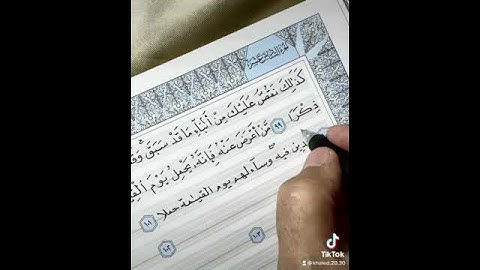 كَذَٰلِكَ نَقُصُّ عَلَيْكَ مِنْ أَنْبَآءِ مَا قَدْ سَبَقَ
ذِكْرًا ٩٩ مَّنْ أَعْرَضَ عَنْهُ فَإِنَّهُ يَحْمِلُ يَوْمَ
فيه وسآء لهم يوم القيٰمة حملا ١٠١
١٠٣ ١٠٢
TikTok
@khaled.20.30